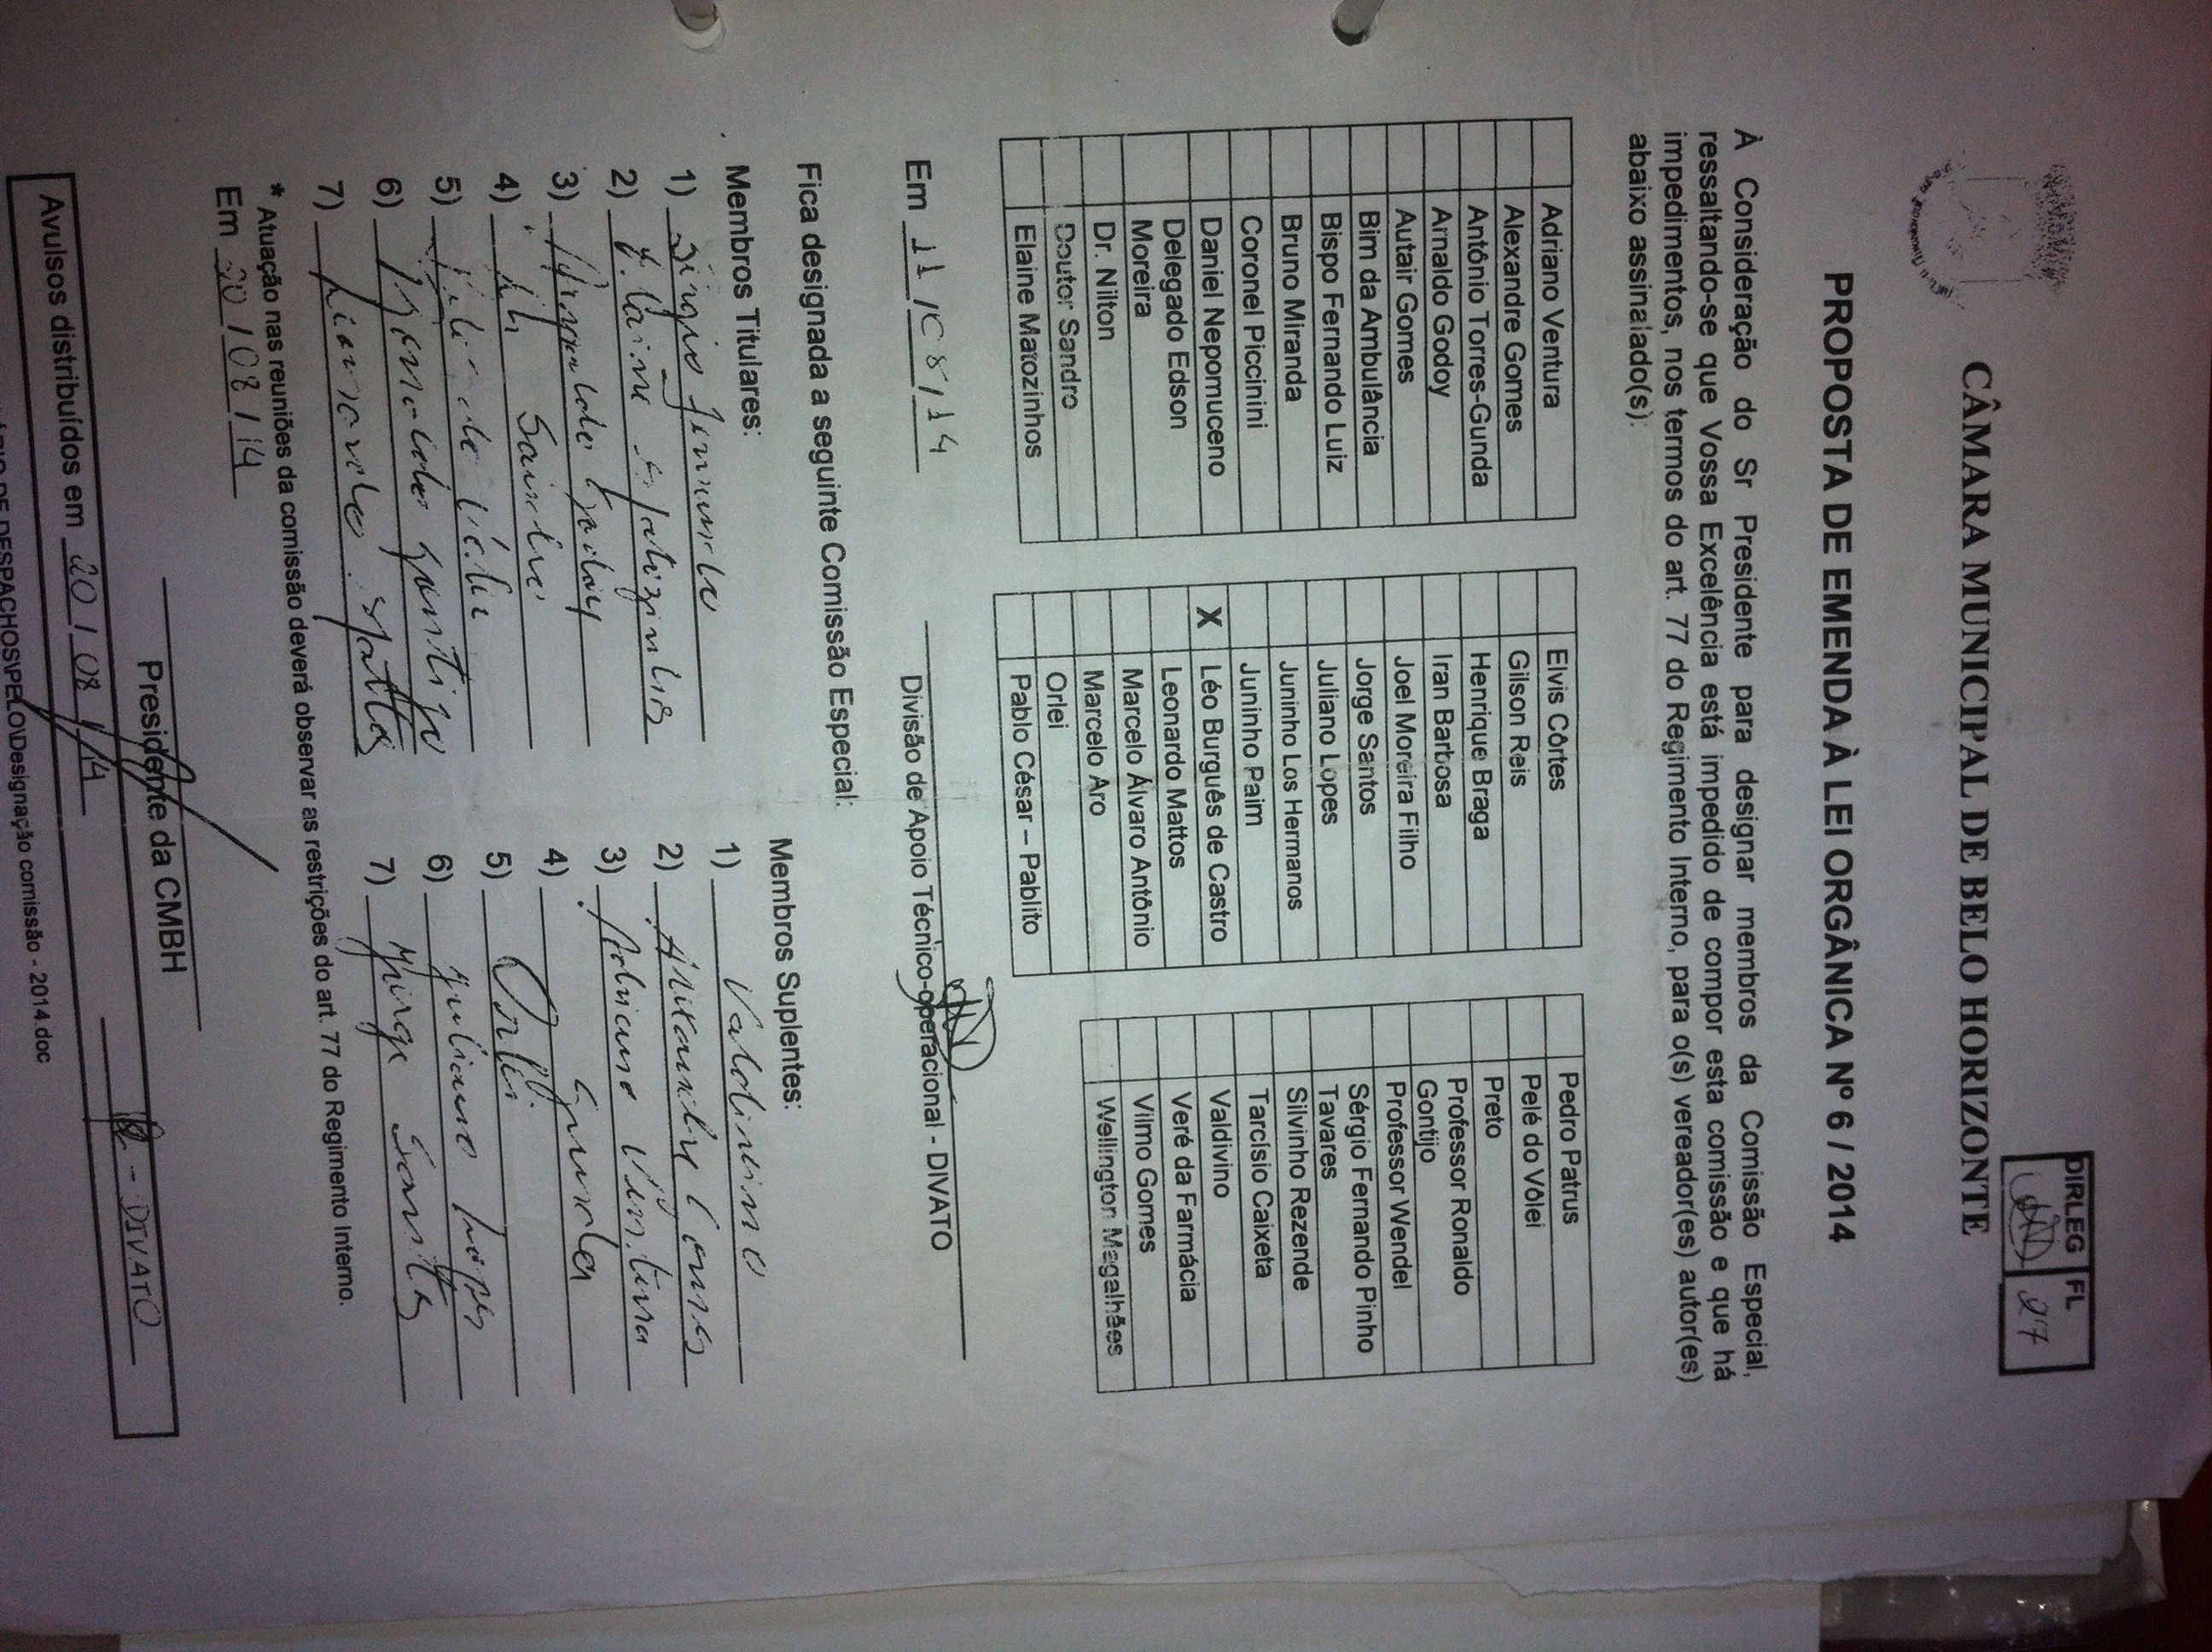 DIRLEG FL
27
CÂMARA MUNICIPAL DE BELO HORIZONTE
PROPOSTA DE EMENDA À LEI ORGÂNICA Nº 6 / 2014
À Consideração do Sr Presidente para designar membros da Comissão Especial,
ressaltando-se que Vossa Excelência está impedido de compor esta comissão e que há
impedimentos, nos termos do art. 77 do Regimento Interno, para o(s) vereador(es) autor(es)
abaixo assinalado(s):
Adriano Ventura
Alexandre Gomes
Antônio Torres-Gunda
Arnaldo Godoy
Autair Gomes
Bim da Ambulância
Bispo Fernando Luiz
Bruno Miranda
Coronel Piccinini
Daniel Nepomuceno
Delegado Edson
Moreira
Dr. Nilton
Doutor Sandro
Elaine Matozinhos
Elvis Côrtes
Gilson Reis
Henrique Braga
Iran Barbosa
Joel Moreira Filho
Jorge Santos
Juliano Lopes
Juninho Los Hermanos
Juninho Paim
X Léo Burguês de Castro
Leonardo Mattos
Marcelo Álvaro Antônio
Marcelo Aro
Orlei
Pablo César – Pablito
Pedro Patrus
Pelé do Vôlei
Preto
Professor Ronaldo
Gontijo
Professor Wendel
Sérgio Fernando Pinho
Tavares
Silvinho Rezende
Tarcísio Caixeta
Valdivino
Veré da Farmácia
Vilmo Gomes
Wellington Magalhães
Em 11/08/14
Divisão de Apoio Técnico-operacional - DIVATO
Fica designada a seguinte Comissão Especial:
Membros Titulares:
1) Sérgio Fernando
2) Elaine Matozinhos
3) Arnaldo Godoy
4) Dr. Sandro
5) Pelé do Vôlei
6) Ronaldo Gontijo
7) Leonardo Mattos
Membros Suplentes:
1) Valdivino
2) Alexandre Gomes
3) Adriano Ventura
4) Gunda
5) Orlei
6) Juliano Lopes
7) Jorge Santos
* Atuação nas reuniões da comissão deverá observar as restrições do art. 77 do Regimento Interno.
Em 20/08/14
Presidente da CMBH
Avulsos distribuídos em 20/08/14 - DIVATO
DE DESPACHOS\PELO\Designação comissão - 2014.doc